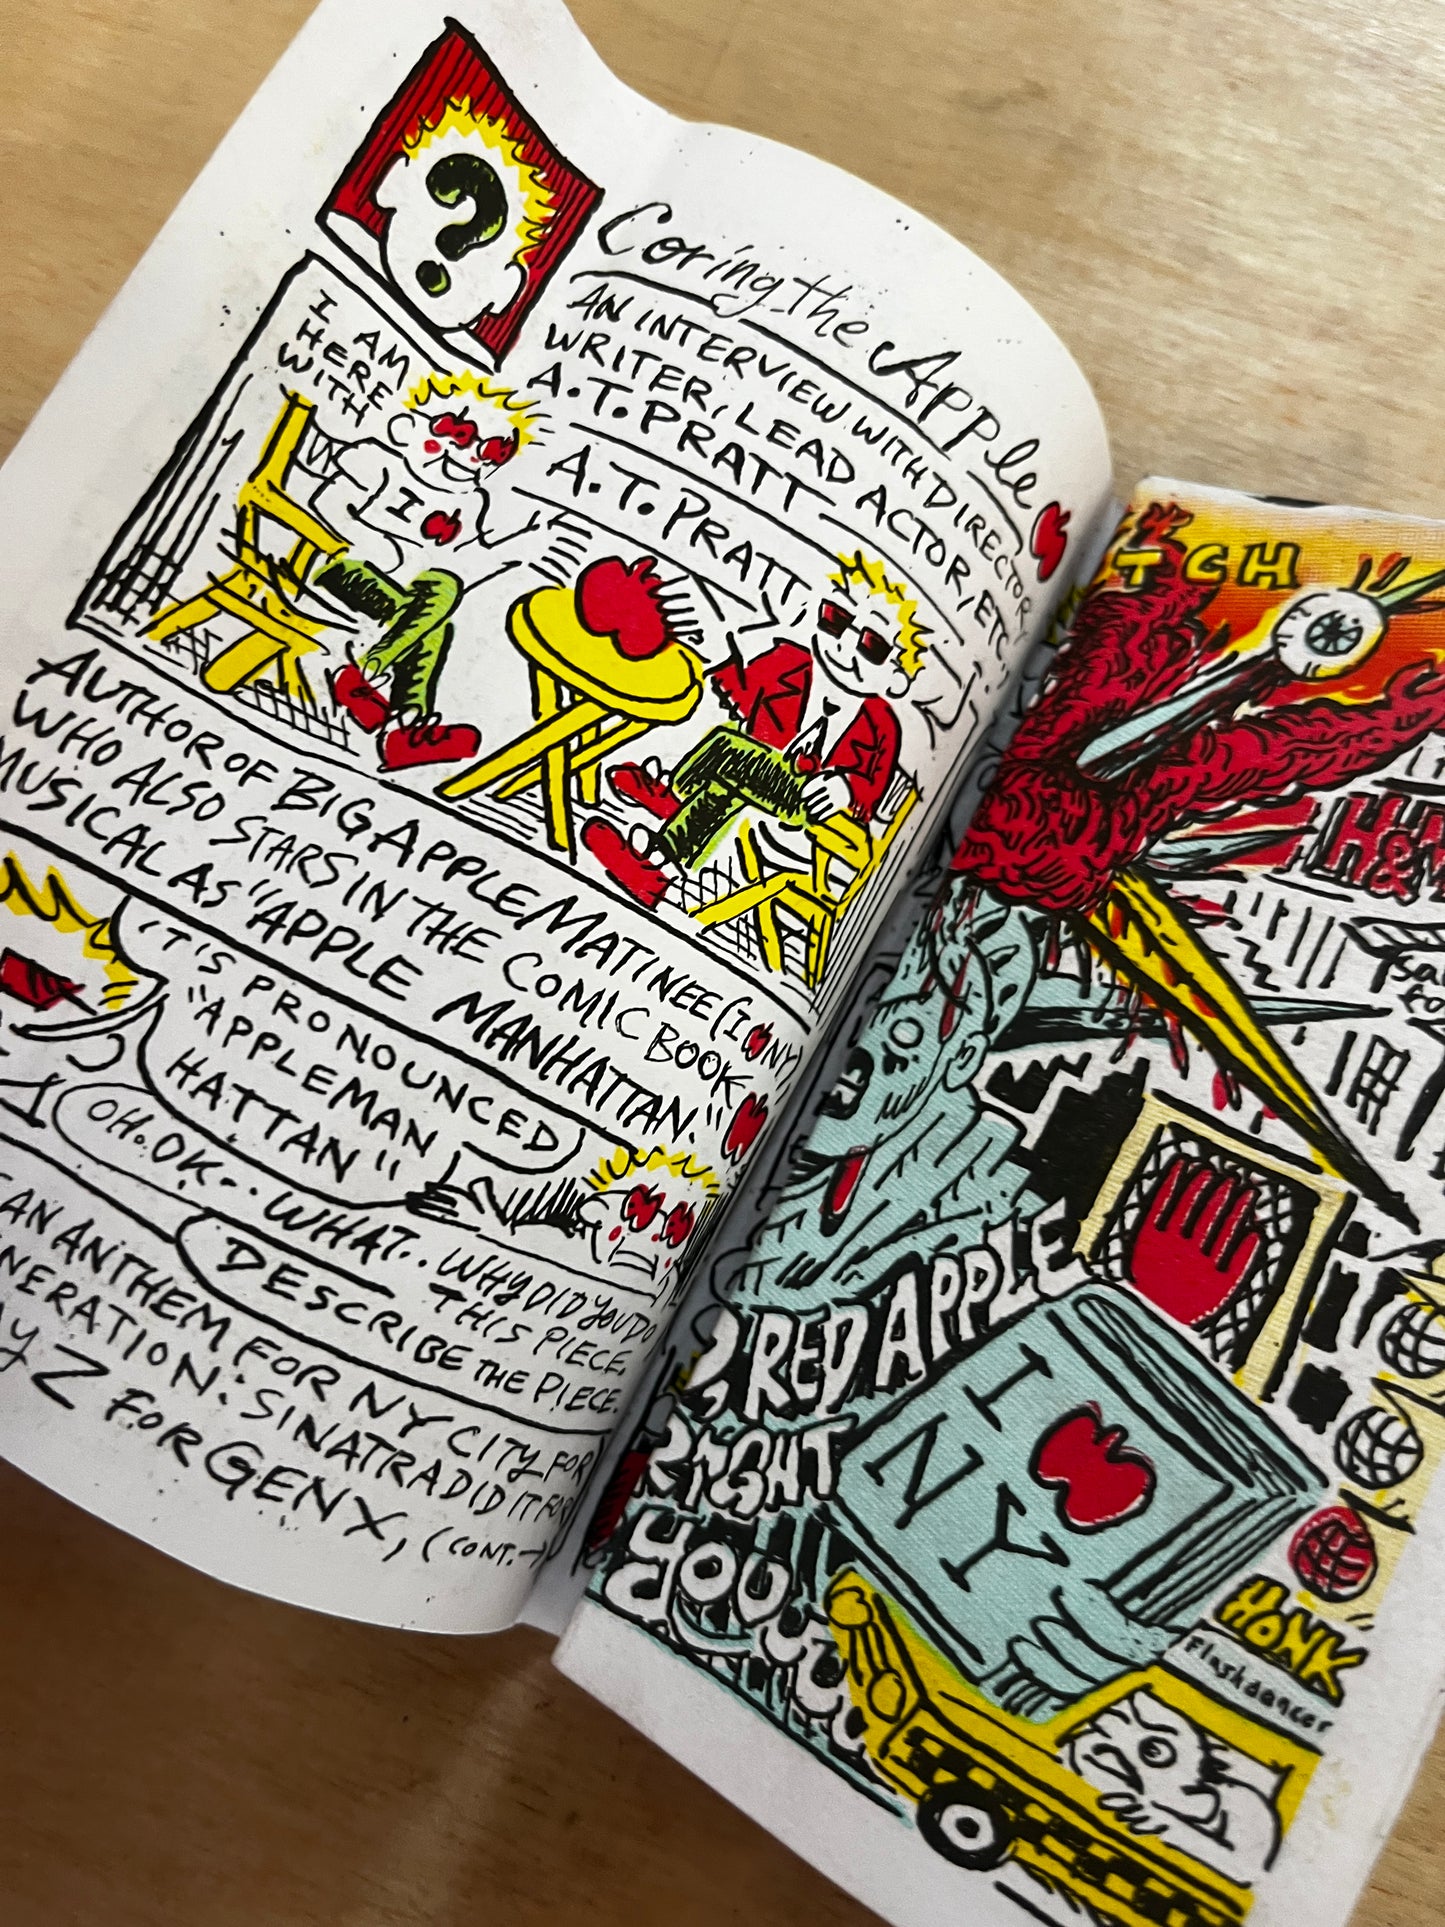 Coring the Apple
AN INTERVIEW WITH DIRECTOR,
WRITER, LEAD ACTOR, ETC..
A.T. PRATT
I AM
HERE
WITH
A.T. PRATT,
I
AUTHOR OF BIG APPLE MATINEE (I NY)
WHO ALSO STARS IN THE COMIC BOOK
MUSICAL AS "APPLE MANHATTAN."
IT'S PRONOUNCED
"APPLEMAN
HATTAN"
OH. OK.. WHAT.. WHY DID YOU DO
THIS PIECE.
DESCRIBE THE PIECE.
AN ANTHEM FOR NY CITY FOR
SINATRA DID IT FOR
Z FOR GEN X, (CONT.→)
TCH
H&M
RED APPLE
RIGHT
YOUUU
I
NY
HONK
Flashdancer